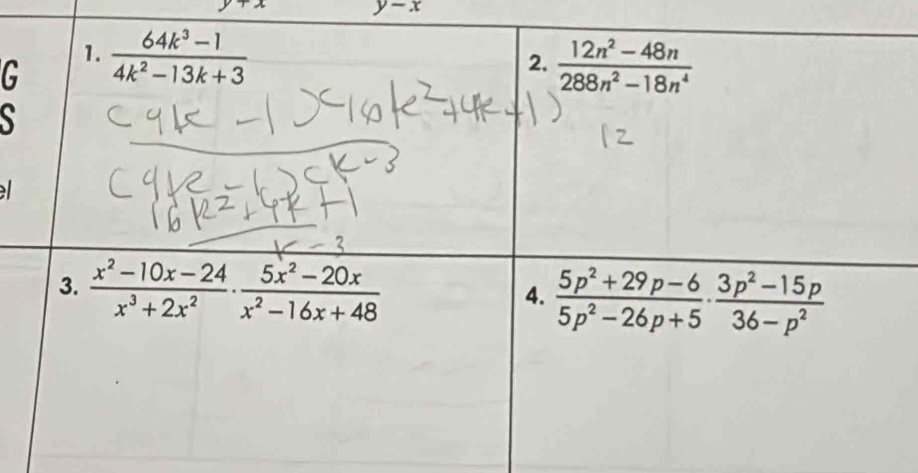 y + x
y − x
G
S
el
1. (64k³ − 1)/(4k² − 13k + 3)
(4k − 1)(16k² + 4k + 1)
(4k − 1)(k − 3
16k² + 4k + 1
k − 3
2. (12n² − 48n)/(288n² − 18n⁴)
12
3. (x² − 10x − 24)/(x³ + 2x²) · (5x² − 20x)/(x² − 16x + 48)
4. (5p² + 29p − 6)/(5p² − 26p + 5) · (3p² − 15p)/(36 − p²)